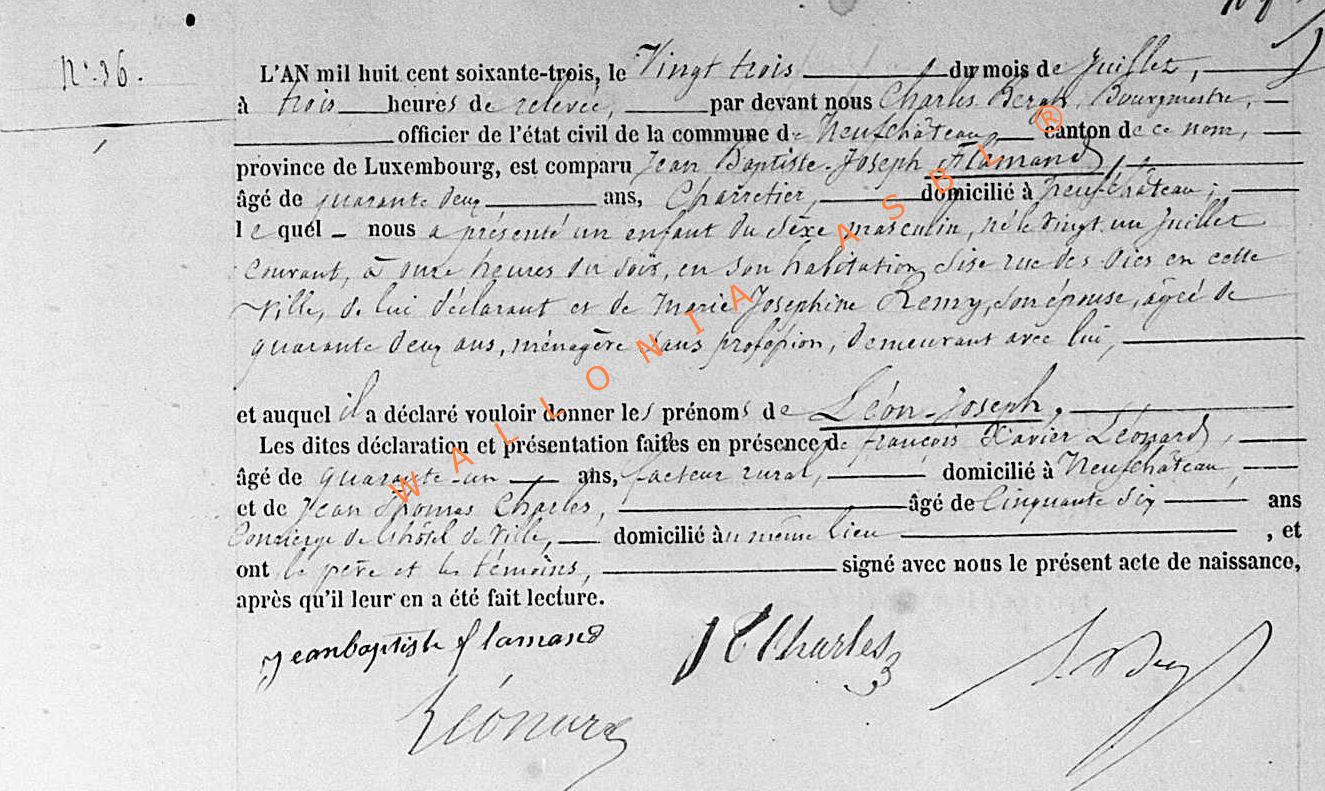 N° 36.
L'AN mil huit cent soixante-trois, le Vingt trois du mois de Juillet,
à trois heures de relevée, par devant nous Charles Bourgmestre,
officier de l'état civil de la commune de Neufchâteau, canton de ce nom,
province de Luxembourg, est comparu Jean Baptiste-Joseph Flamand,
âgé de quarante deux ans, Charretier, domicilié à Neufchâteau;
lequel nous a présenté un enfant du sèxe masculin, né le vingt un Juillet
Courant, à onze heures du soir, en son habitation, sise rue des en cette
Ville, de lui déclarant et de Marie Josephine Remy, son épouse, âgée de
quarante deux ans, ménagère sans profession, demeurant avec lui,
et auquel il a déclaré vouloir donner les prénoms de Léon-Joseph,
Les dites déclaration et présentation faites en présence de françois Xavier Léonard,
âgé de quarante-un ans, facteur rural, domicilié à Neufchâteau,
et de Jean Thomas Charles, âgé de Cinquante six ans
Concierge de l'hôtel de Ville, domicilié au même lieu, et
ont le père et les témoins, signé avec nous le présent acte de naissance,
après qu'il leur en a été fait lecture.
Jeanbaptiste flamand
J T Charles
Léonard
WALLONIA ASBL ®